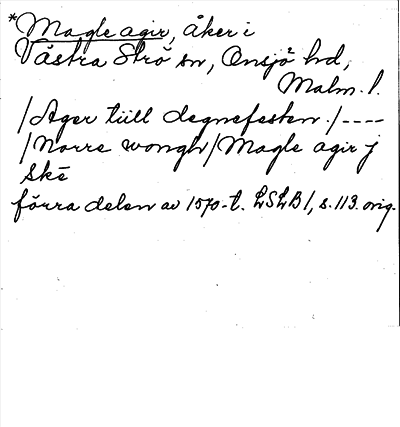 *Magle agir, åker i
Västra Strö sn, Onsjö hd,
Malm. l.
/Ager tiill degnefesten./----
/Norre wongh/Magle agir j
Skē
förra delen av 1570-t. LSLB 1, s. 113. orig.